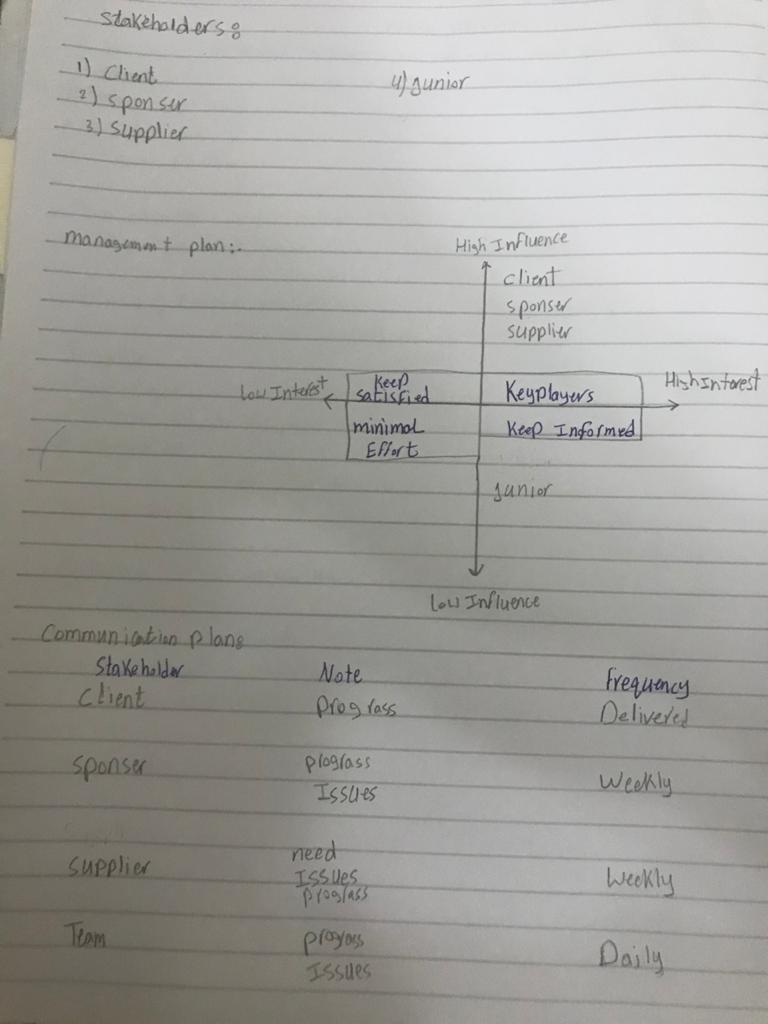 Stakeholders:
1) Client
4) Junior
2) Sponser
3) Supplier
management plan:-
High Influence
client
sponser
supplier
Low Interest
Keep
satisfied
Keyplayers
High Interest
minimal
Effort
Keep Informed
Junior
Low Influence
Communication plan:
Stakeholder Note Frequency
Client prograss Delivered
Sponser prograss
Issues
Weekly
Supplier need
Issues
prograss
Weekly
Team prograss
Issues
Daily